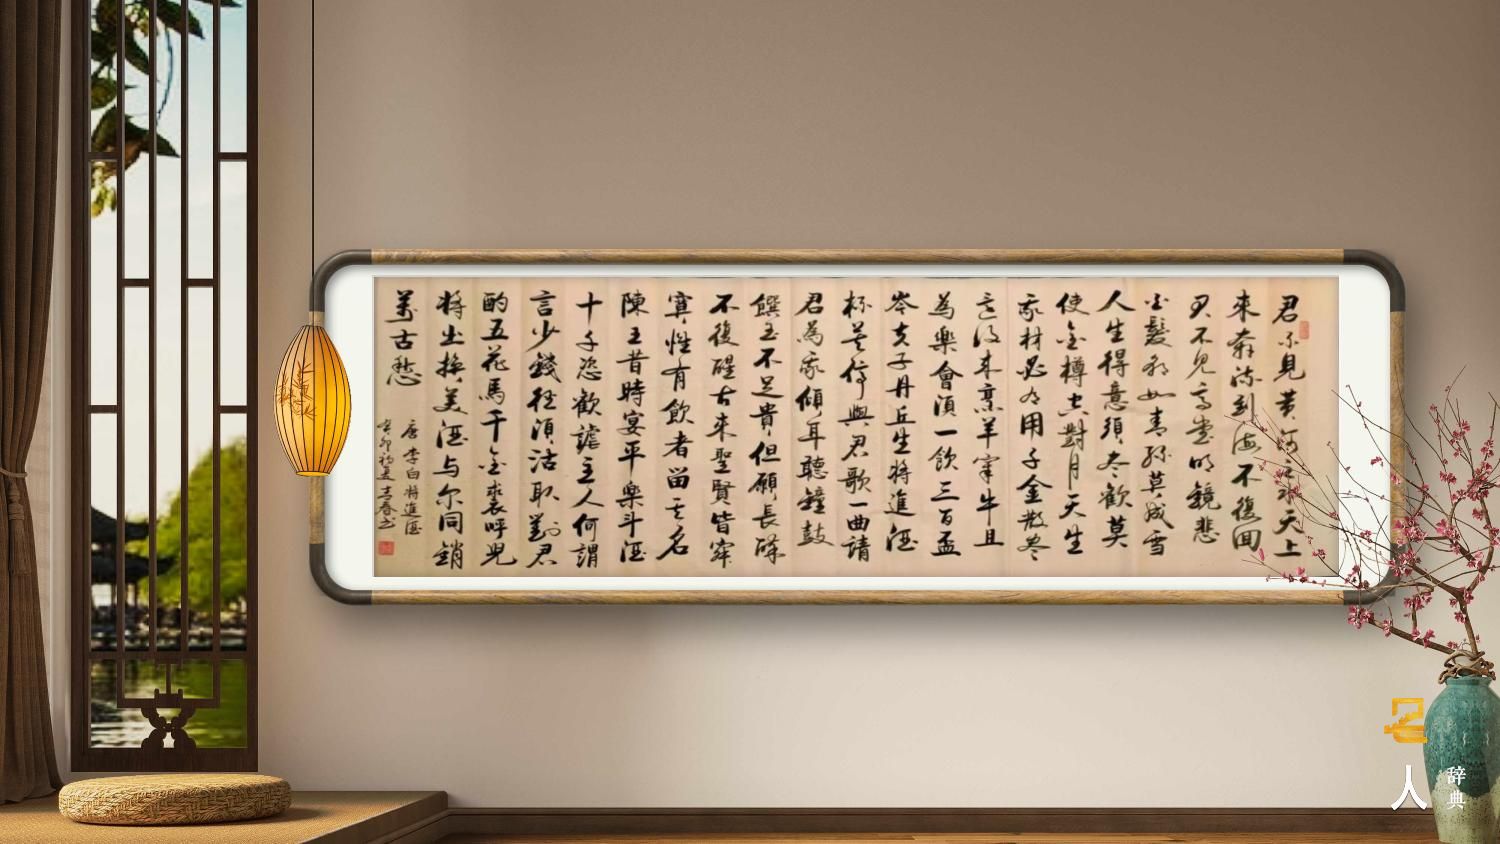 君不見黃河之水天上
來奔流到海不復回
又不見高堂明鏡悲
白髮朝如青絲莫成雪
人生得意須盡歡莫
使金樽空對月天生
我材必有用千金散盡
還復來烹羊宰牛且
為樂會須一飲三百盃
岑夫子丹丘生將進酒
杯莫停與君歌一曲請
君為我傾耳聽鐘鼓
饌玉不足貴但願長醉
不復醒古來聖賢皆寂
寞惟有飲者留其名
陳王昔時宴平樂斗酒
十千恣歡謔主人何謂
言少錢徑須沽取對君
酌五花馬千金裘呼兒
將出換美酒与尔同銷
萬古愁
唐李白將進酒
癸卯初夏志春書
名人
辞典